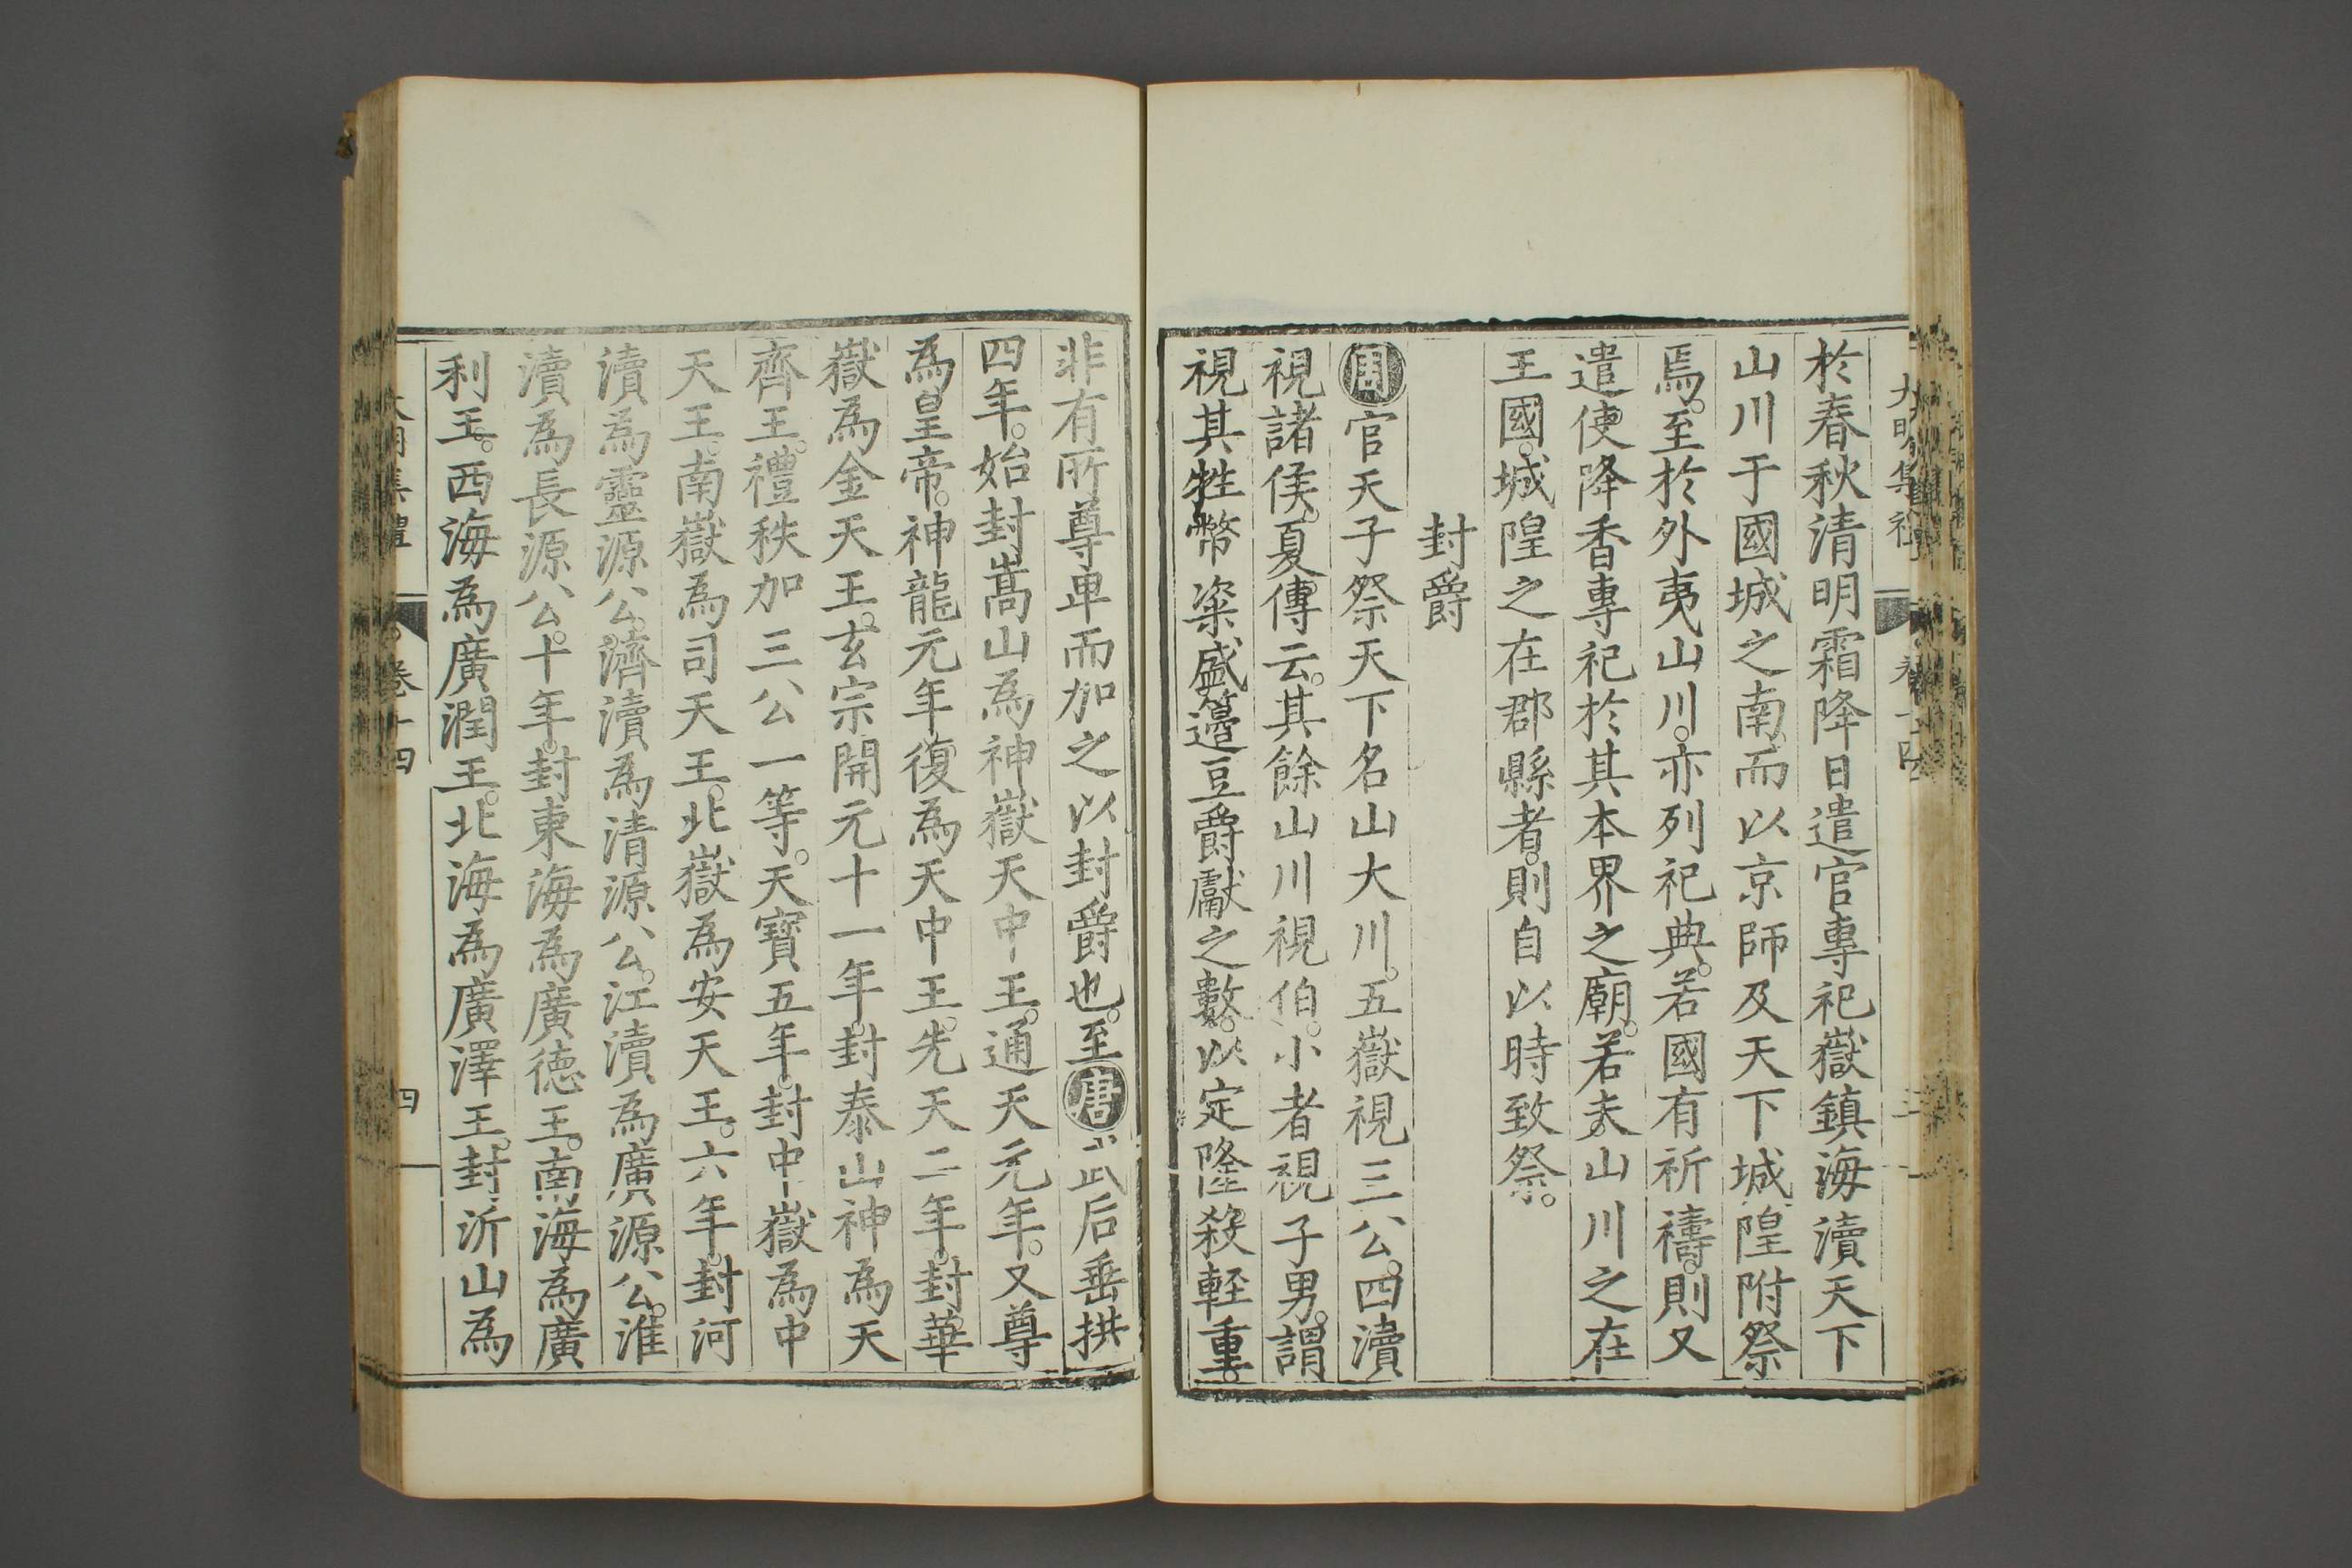 於春秋清明霜降日遣官專祀嶽鎮海瀆天下
山川于國城之南而以京師及天下城隍附祭
焉。至於外夷山川。亦列祀典。若國有祈禱。則又
遣使降香專祀於其本界之廟。若夫山川之在
王國。城隍之在郡縣者。則自以時致祭。
封爵
周官天子祭天下名山大川。五嶽視三公。四瀆
視諸侯。夏傳云。其餘山川視伯。小者視子男。謂
視其牲幣粢盛籩豆爵獻之數。以定隆殺輕重。
非有所尊卑而加之以封爵也。至唐武后垂拱
四年。始封嵩山為神嶽天中王。通天元年。又尊
為皇帝。神龍元年復為天中王。先天二年。封華
嶽為金天王。玄宗開元十一年。封泰山神為天
齊王。禮秩加三公一等。天寶五年。封中嶽為中
天王。南嶽為司天王。北嶽為安天王。六年。封河
瀆為靈源公。濟瀆為清源公。江瀆為廣源公。淮
瀆為長源公。十年。封東海為廣德王。南海為廣
利王。西海為廣潤王。北海為廣澤王。封沂山為
大明集禮 卷十四 四